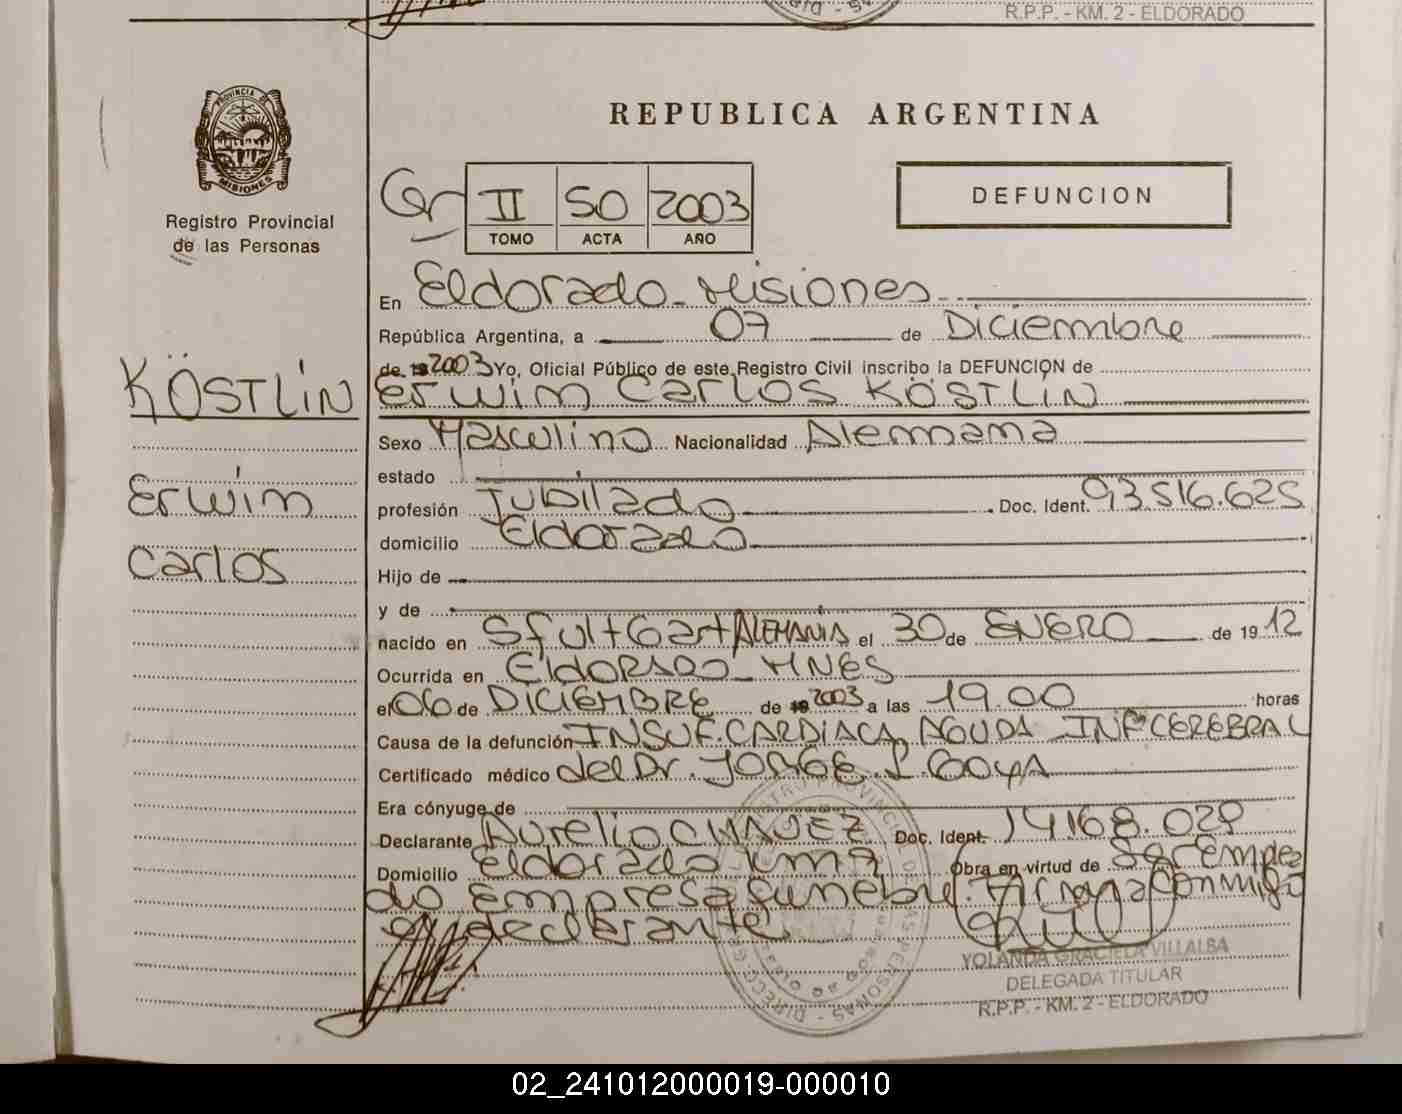 R.P.P. - KM. 2 - ELDORADO
PROVINCIA DE
MISIONES
Registro Provincial
de las Personas
REPUBLICA ARGENTINA
II 50 2003
TOMO ACTA AÑO
DEFUNCION
En Eldorado - Misiones
República Argentina, a 07 de Diciembre
de 2003 Yo, Oficial Público de este Registro Civil inscribo la DEFUNCION de
Erwin Carlos KÖSTLIN
KÖSTLIN
Erwin
Carlos
Sexo Masculino Nacionalidad Alemana
estado
profesión Jubilado Doc. Ident. 93.516.625
domicilio Eldorado
Hijo de
y de
nacido en Sfultgart ALEMANIA el 30 de ENERO de 1912
Ocurrida en ElDORADO - MNES
el 06 de DICIEMBRE de 2003 a las 19.00 horas
Causa de la defunción INSUF. CARDIACA AGUDA INF CEREBRAL
Certificado médico del Dr. JORGE L GOYA
Era cónyuge de
Declarante Aurelio CHAVEZ Doc. Ident. 14.168.028
Domicilio Eldorado Km 9 Obra en virtud de Ser emplea
do Empresa funebre. Firma conmigo
el declarante
YOLANDA GRACIELA VILLALBA
DELEGADA TITULAR
R.P.P. - KM. 2 - ELDORADO
02_241012000019-000010